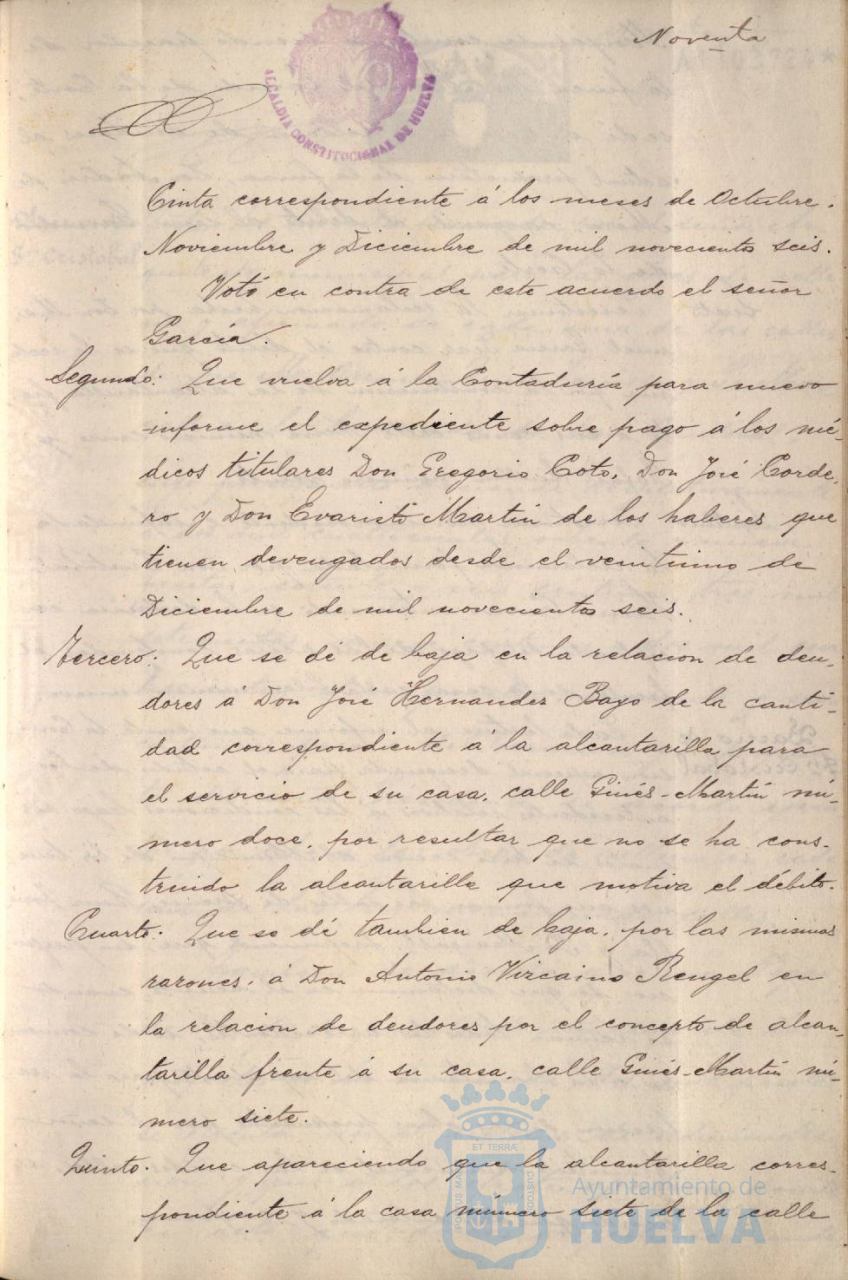 Noventa
ALCALDIA CONSTITUCIONAL DE HUELVA
Cinta correspondiente á los meses de Octubre.
Noviembre y Diciembre de mil novecientos seis.
Votó en contra de este acuerdo el señor
García.
Segundo: Que vuelva á la Contaduría para nuevo
informe el expediente sobre pago á los mé-
dicos titulares Don Gregorio Coto, Don José Corde-
ro y Don Evaristo Martin de los haberes que
tienen devengados desde el veintiuno de
Diciembre de mil novecientos seis.
Tercero: Que se dé de baja en la relacion de deu-
dores á Don José Hernandez Bayo de la canti-
dad correspondiente á la alcantarilla para
el servicio de su casa, calle Ginés-Martín nú-
mero doce, por resultar que no se ha cons-
truido la alcantarilla que motiva el débito.
Cuarto: Que se dé tambien de baja, por las mismas
razones, á Don Antonio Vizcaino Rengel en
la relacion de deudores por el concepto de alcan-
tarilla frente á su casa, calle Ginés-Martín nú-
mero siete.
Quinto. Que apareciendo que la alcantarilla corres-
pondiente á la casa número siete de la calle
ET TERRÆ
Ayuntamiento de
HUELVA